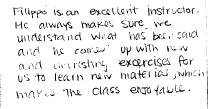 Filippo is an excellent instructor.
He always makes sure we
understand what has been said
and he comes up with new
and interesting excercises for
us to learn new material, which
makes the class enjoyable.